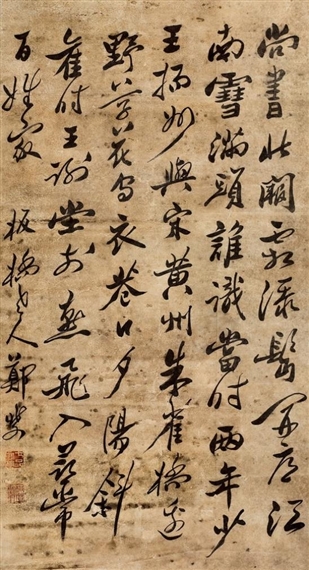 尚書北闕霜添鬢開府江
南雪滿頭誰識當時兩年少
王揚州與宋黃州朱雀橋邊
野草花烏衣巷口夕陽斜
舊時王謝堂前燕飛入尋常
百姓家 板橋老人鄭燮